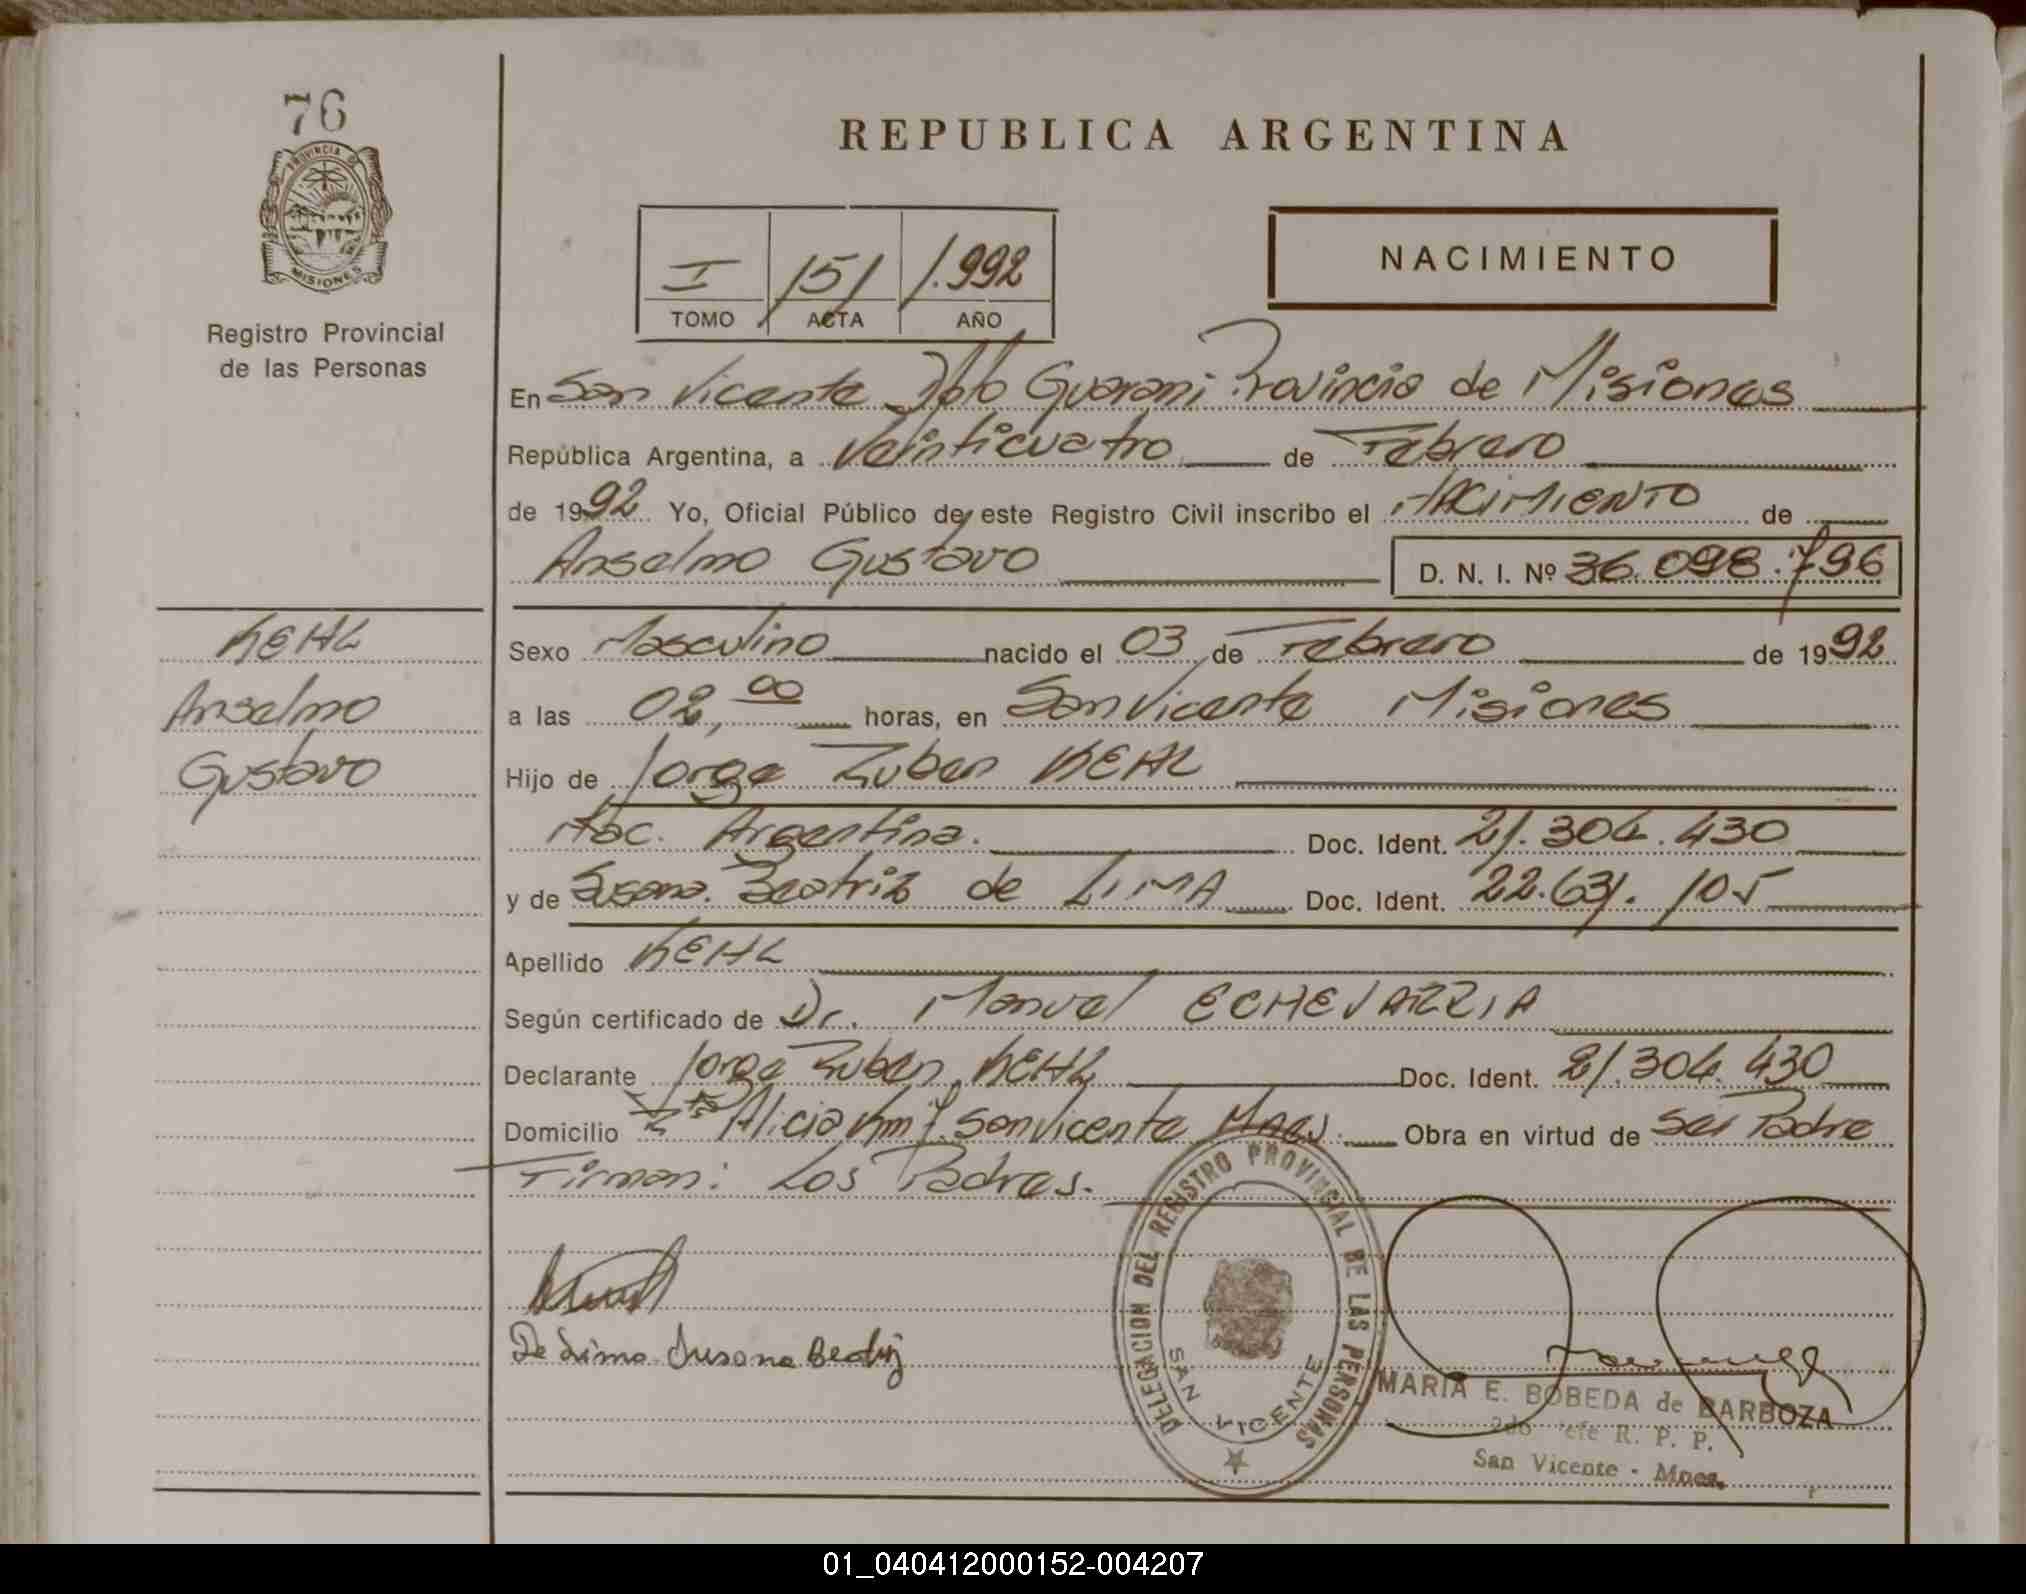 76
PROVINCIA DE
MISIONES
Registro Provincial
de las Personas
REPUBLICA ARGENTINA
I 151 1.992
TOMO ACTA AÑO
NACIMIENTO
En San Vicente Dpto Guarani Provincia de Misiones
República Argentina, a Veinticuatro de Febrero
de 1992 Yo, Oficial Público de este Registro Civil inscribo el NACIMIENTO de
Anselmo Gustavo D. N. I. Nº 36.098.796
KEHL
Anselmo
Gustavo
Sexo Masculino nacido el 03 de Febrero de 1992
a las 02,00 horas, en San Vicente Misiones
Hijo de Jorge Ruben KEHL
Nac. Argentina. Doc. Ident. 21.304.430
y de Susana Beatriz de LIMA Doc. Ident. 22.631.105
Apellido KEHL
Según certificado de Dr. Manuel ECHEVARRIA
Declarante Jorge Ruben KEHL Doc. Ident. 21.304.430
Domicilio Alicia Km San Vicente Mnes. Obra en virtud de Ser Padre
Firman: Los Padres.
De Lima Susana Beatriz
DELEGACION DEL REGISTRO PROVINCIAL DE LAS PERSONAS
SAN VICENTE
MARIA E. BOBEDA de BARBOZA
2do Jefe R. P. P.
San Vicente - Mnes.
01_040412000152-004207